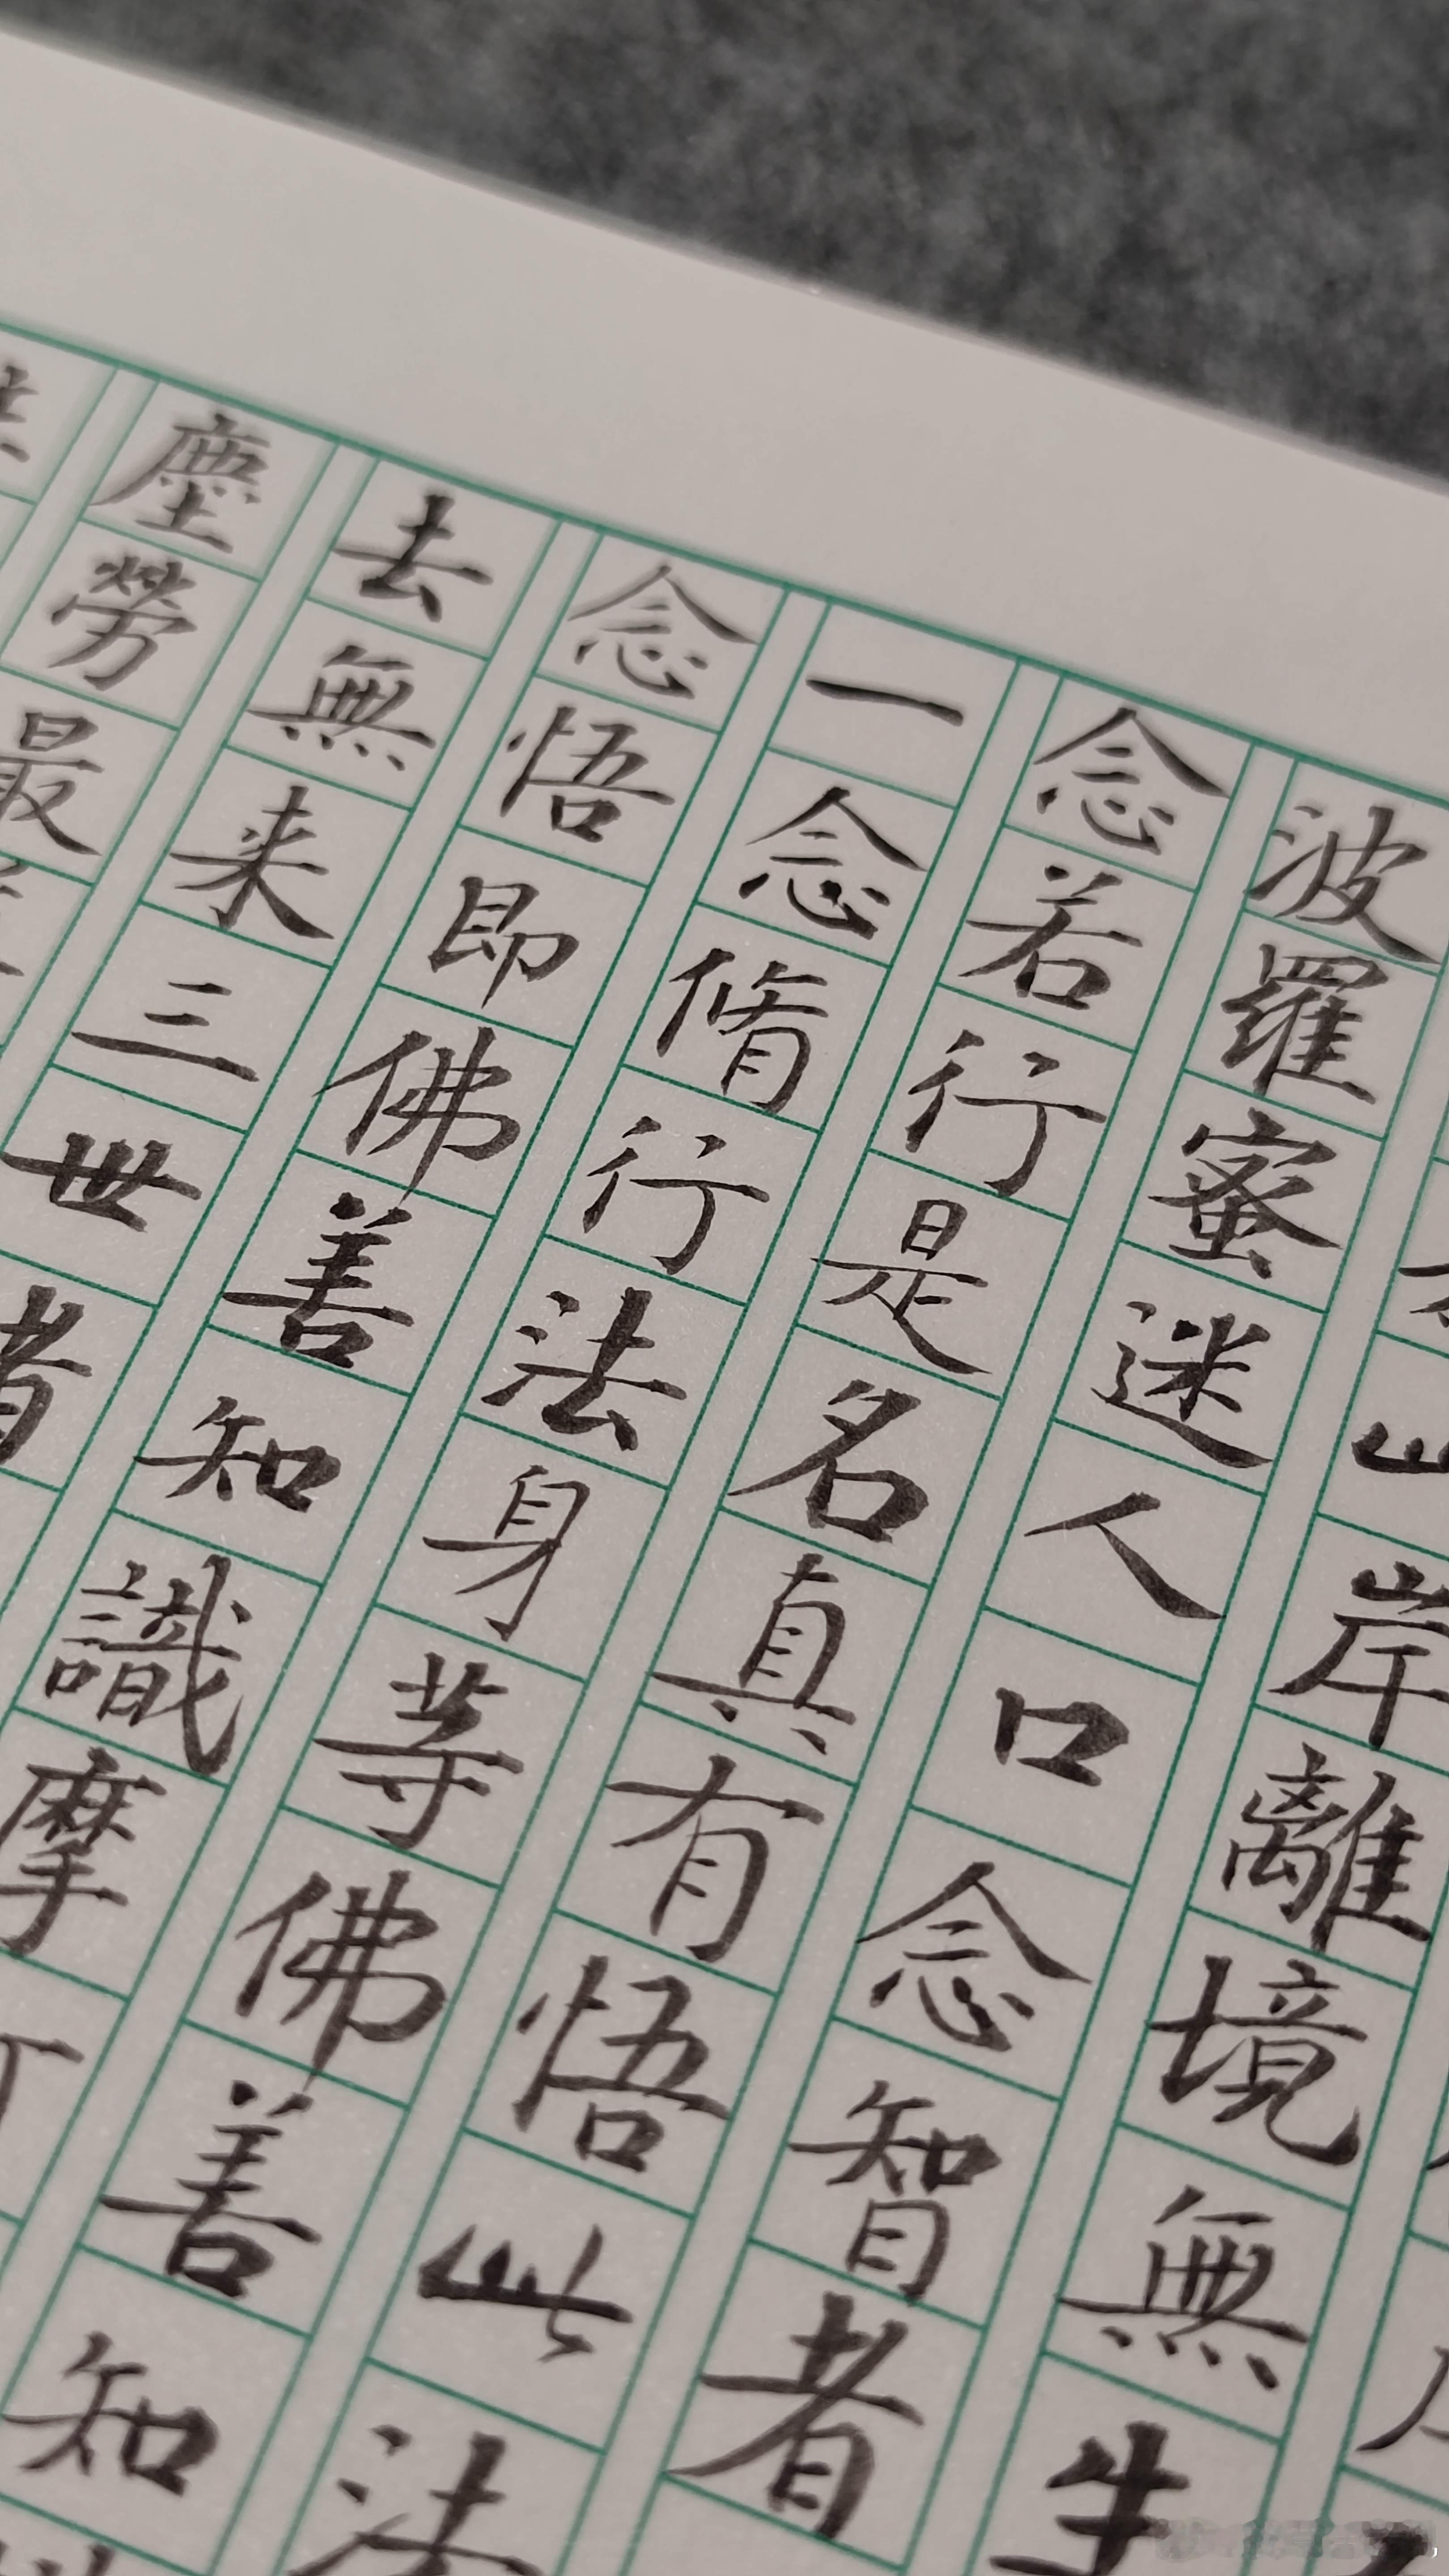 岸離境無生
波羅蜜迷人口念智者
念若行是名真有悟此法
一念脩行法身等佛善知
念悟即佛善知識摩
去無来三世
塵勞最